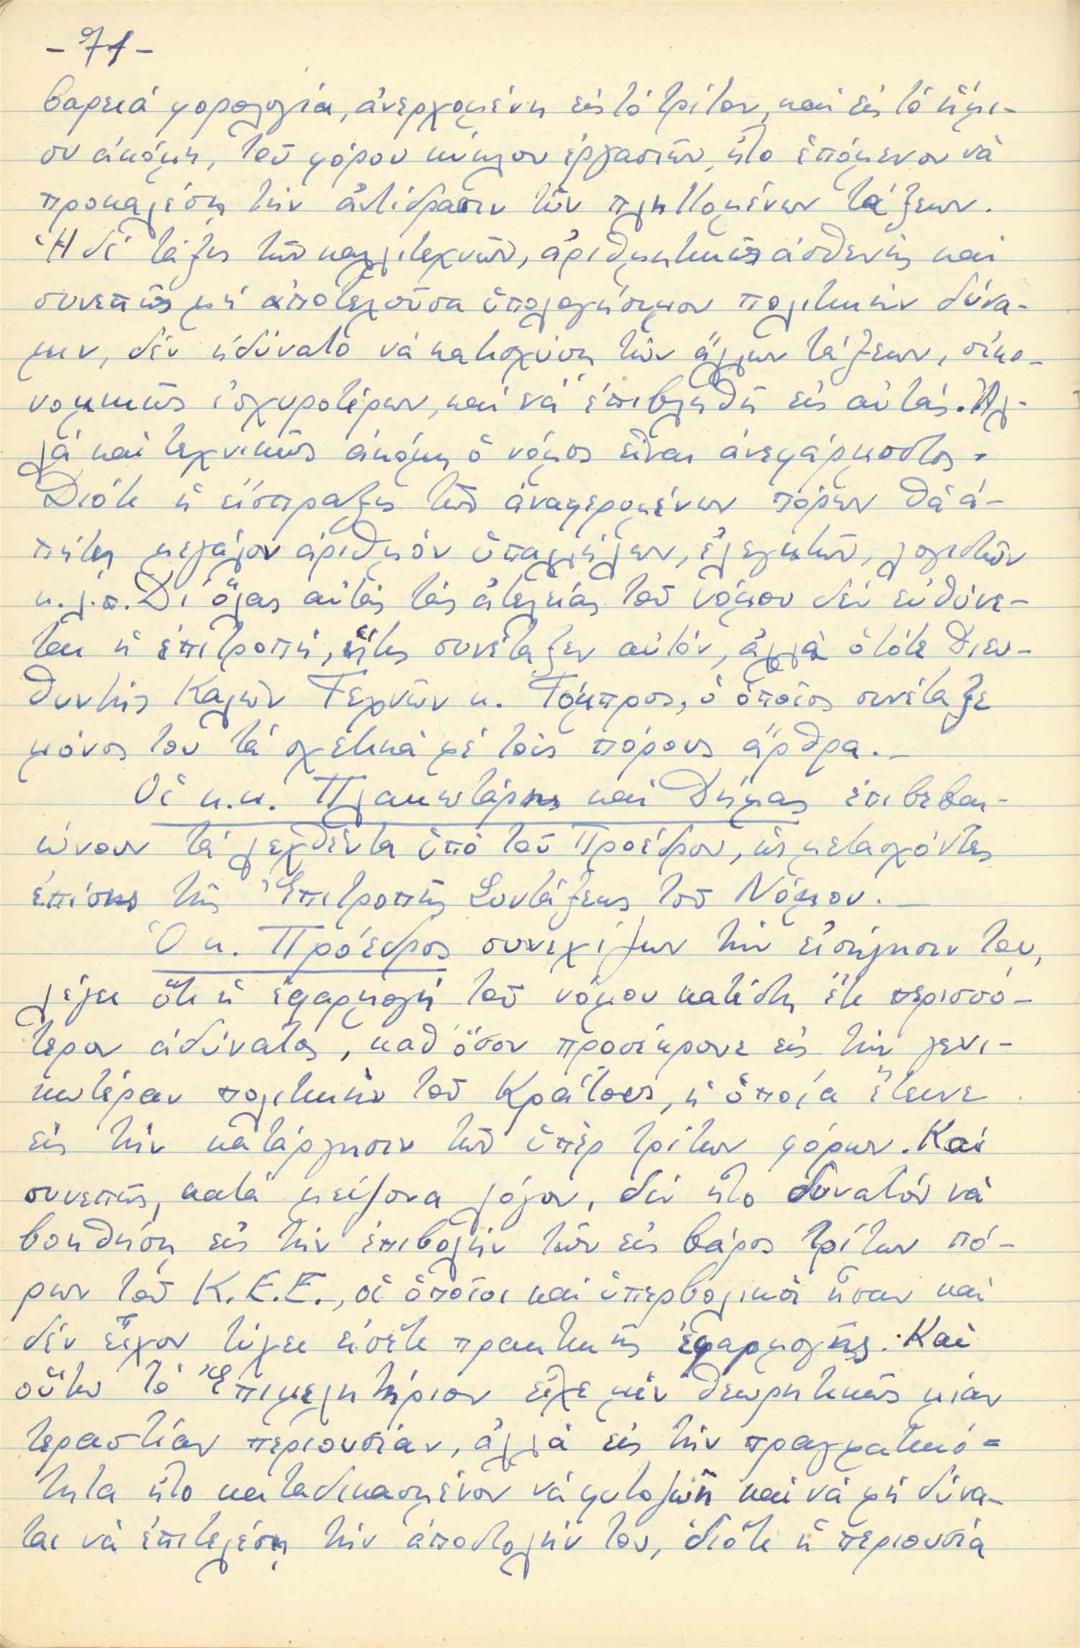 - 71 -
βαρειά φορολογία, ἀνερχομένη εἰς τό τρίτον, καί εἰς τό ἥμι-
συ ἀκόμη, τοῦ φόρου κύκλου ἐργασιῶν, ἦτο ἑπόμενον νὰ
προκαλέσῃ τὴν ἀντίδρασιν τῶν πληττομένων τάξεων.
Ἡ δέ τάξις τῶν καλλιτεχνῶν, ἀριθμητικῶς ἀσθενής καί
συνεπῶς μή ἀποτελοῦσα ὑπολογίσιμον πολιτικὴν δύνα-
μιν, δέν ἠδύνατο νά κατισχύσῃ τῶν ἄλλων τάξεων, οἰκο-
νομικῶς ἰσχυροτέρων, καί νά ἐπιβληθῇ εἰς αὐτάς. Ἀλ-
λά καί τεχνικῶς ἀκόμη ὁ νόμος εἶναι ἀνεφάρμοστος.
Διότι ἡ εἴσπραξις τῶν ἀναφερομένων πόρων θά ἀ-
πῄτει μεγάλον ἀριθμόν ὑπαλλήλων, ἐλεγκτῶν, λογιστῶν
κ.λ.π. Δι' ὅλας αὐτάς τάς ἀτελείας τοῦ νόμου δέν εὐθύνε-
ται ἡ ἐπιτροπή, ἥτις συνέταξεν αὐτόν, ἀλλὰ ὁ τότε Διευ-
θυντής Καλῶν Τεχνῶν κ. Τόμπρος, ὁ ὁποῖος συνέταξε
μόνος του τά σχετικά μέ τούς πόρους ἄρθρα.-
Οἱ κ.κ. Πλακωτάρης καί Δήμας ἐπιβεβαι-
ώνουν τά λεχθέντα ὑπό τοῦ Προέδρου, ὡς μετασχόντες
ἐπίσης τῆς Ἐπιτροπῆς Συντάξεως τοῦ Νόμου.-
Ὁ κ. Πρόεδρος συνεχίζων τὴν εἰσήγησιν του,
λέγει ὅτι ἡ ἐφαρμογή τοῦ νόμου κατέστη ἔτι περισσό-
τερον ἀδύνατος, καθ' ὅσον προσέκρουε εἰς τὴν γενι-
κωτέραν πολιτικὴν τοῦ Κράτους, ἡ ὁποία ἔτεινε
εἰς τὴν κατάργησιν τῶν ὑπέρ τρίτων φόρων. Καί
συνεπῶς, κατά μείζονα λόγον, δέν ἦτο δυνατόν νά
βοηθήσῃ εἰς τὴν ἐπιβολὴν τῶν εἰς βάρος τρίτων πό-
ρων τοῦ Κ.Ε.Ε., οἱ ὁποῖοι καί ὑπερβολικοί ἦσαν καί
δέν εἶχον τύχει εἰσέτι πρακτικῆς ἐφαρμογῆς. Καί
οὕτω τό Ἐπιμελητήριον εἶχε μέν θεωρητικῶς μίαν
τεραστίαν περιουσίαν, ἀλλὰ εἰς τὴν πραγματικό-
τητα ἦτο καταδικασμένον νά φυτοζωῇ καί νά μή δύνα-
ται νά ἐπιτελέσῃ τὴν ἀποστολὴν του, διότι ἡ περιουσία